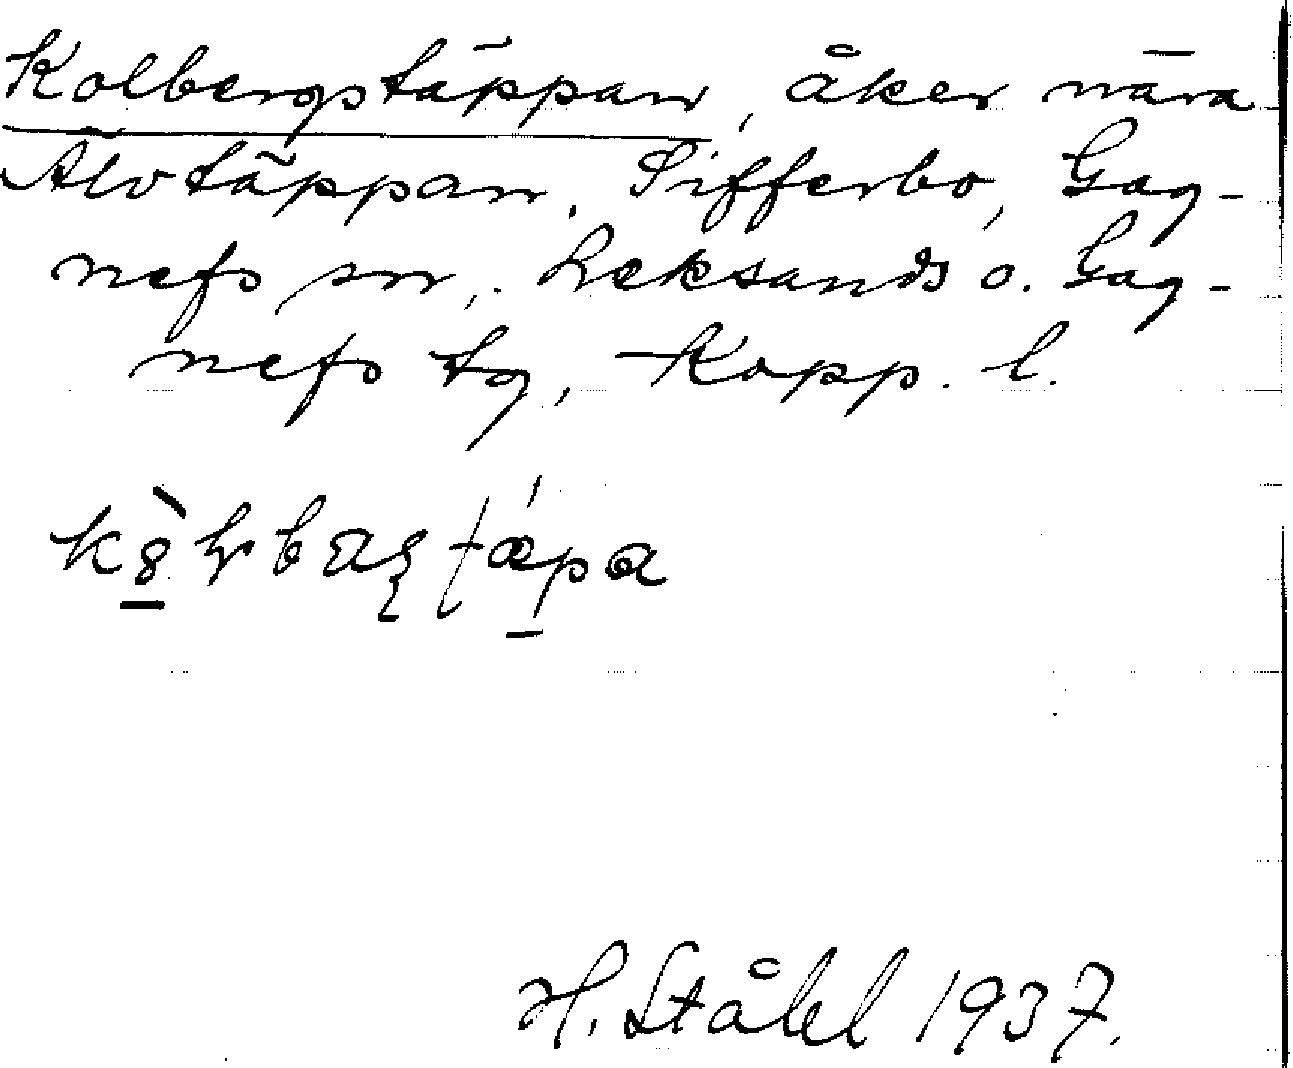 Kolbergstäppan, åker nära
Älvtäppan, Sifferbo, Gag-
nefs sn, Leksands o. Gag-
nefs tg, Kopp. l.
H. Ståhl 1937.